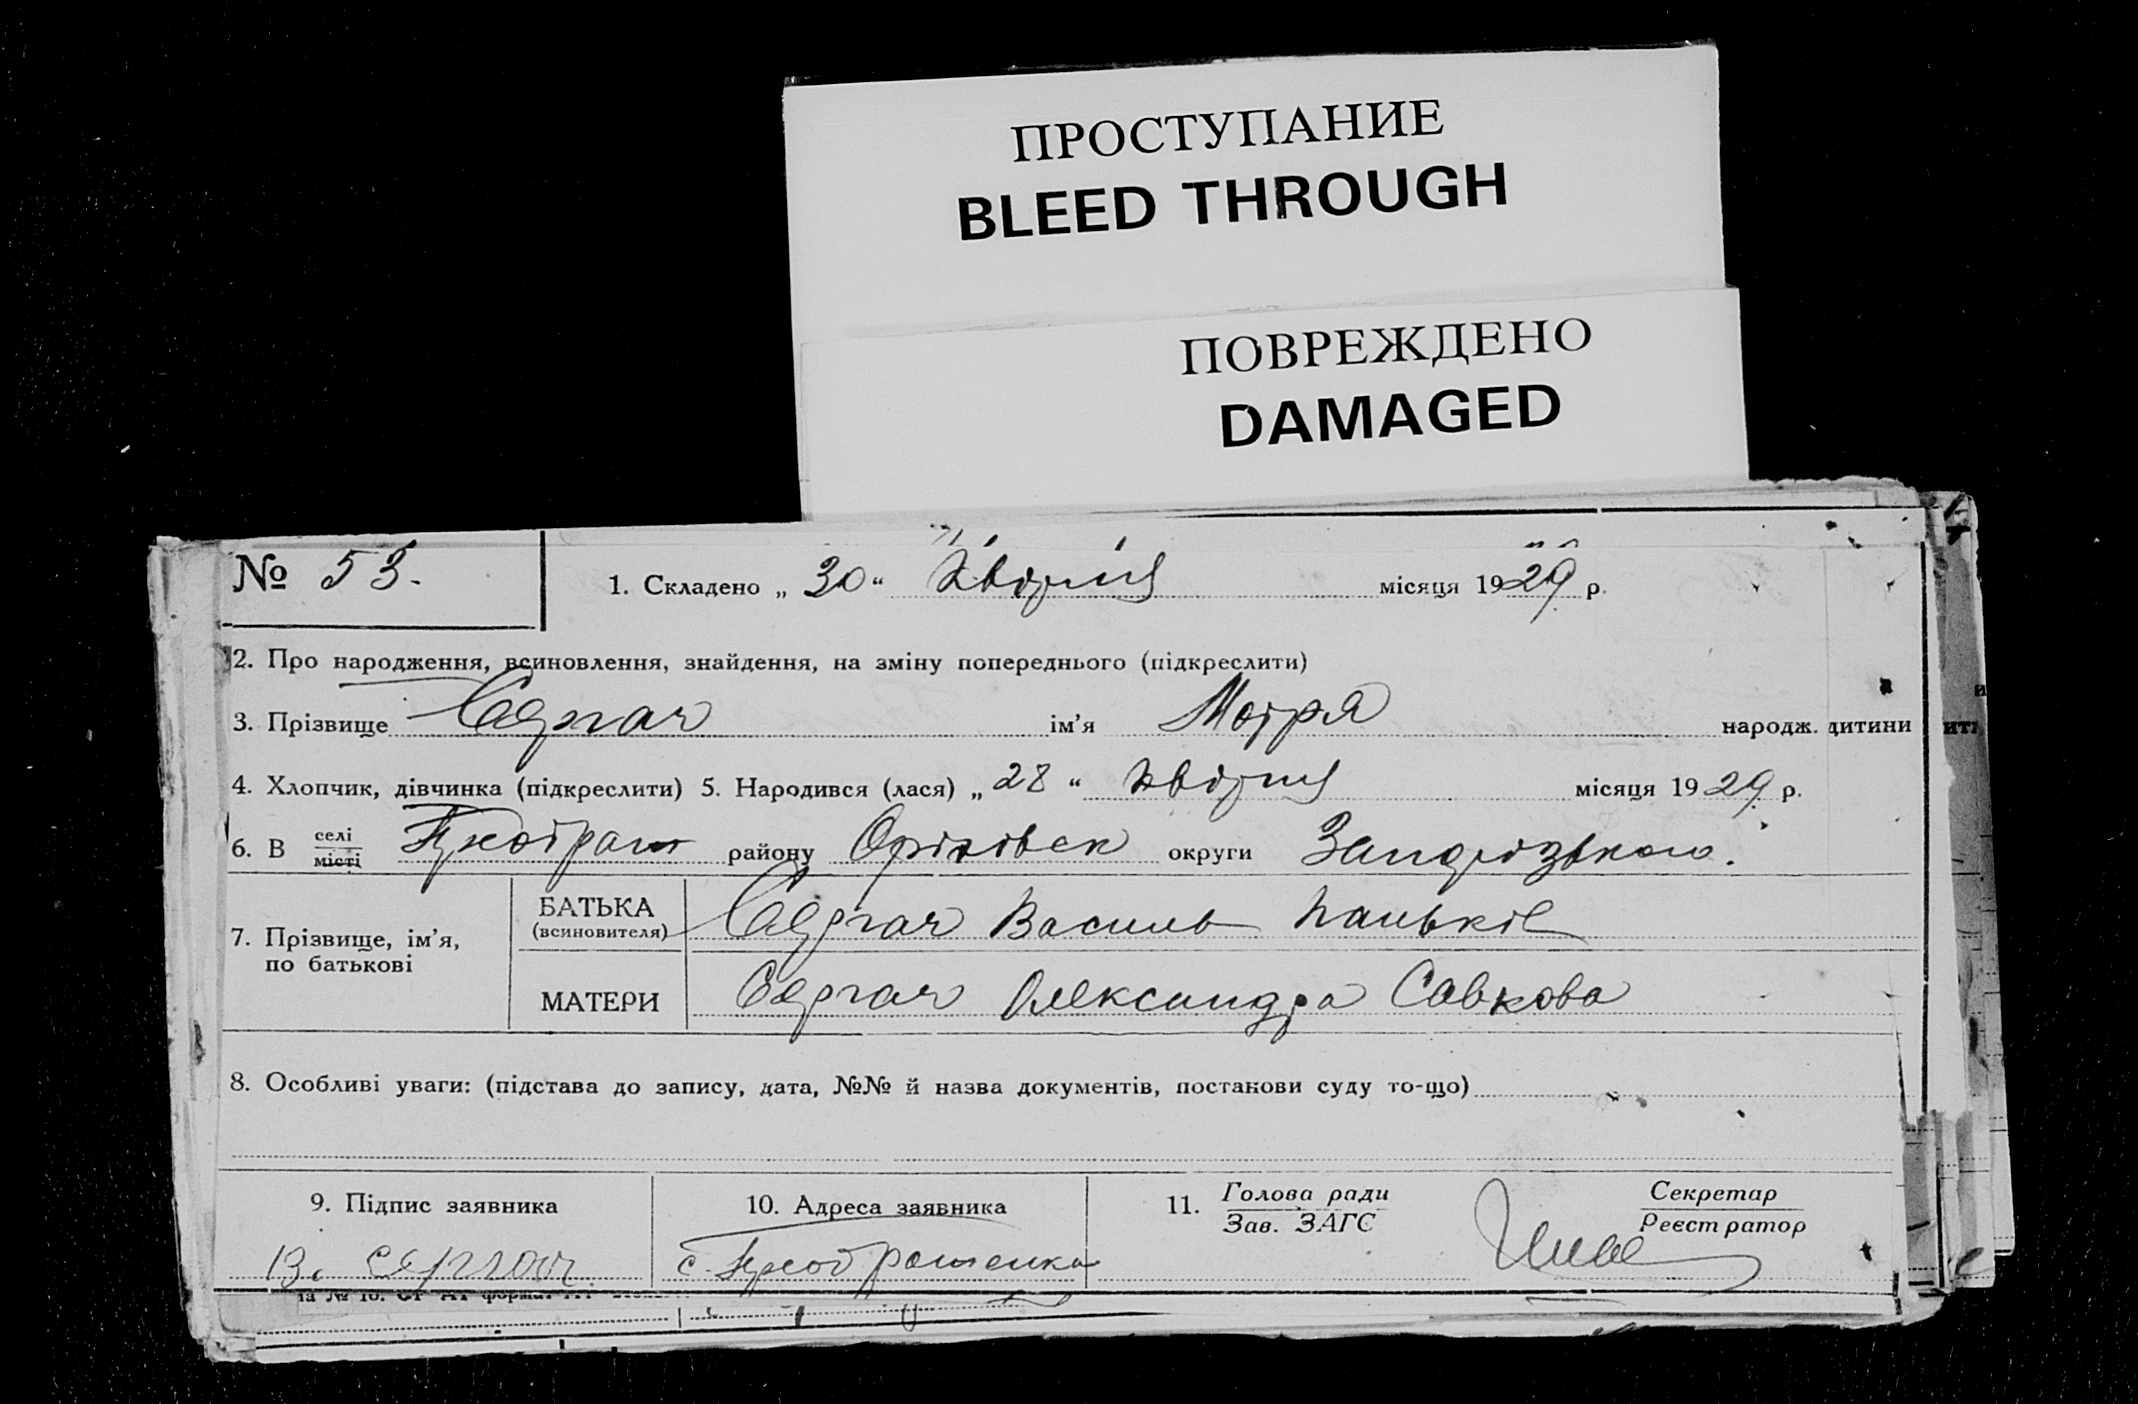 ПРОСТУПАНИЕ
BLEED THROUGH
ПОВРЕЖДЕНО
DAMAGED
№ 53.
1. Складено „ 30 “ Квітня місяця 1929 р.
2. Про народження, всиновлення, знайдення, на зміну попереднього (підкреслити)
3. Прізвище Сергач ім’я Мотря народж. дитини
4. Хлопчик, дівчинка (підкреслити) 5. Народився (лася) „ 28 “ Квітня місяця 1929 р.
6. В селі місті району Оріхівськ округи Запорізького.
7. Прізвище, ім’я, по батькові
БАТЬКА (всиновителя) Сергач Василь Паньків
МАТЕРИ Сергач Олександра Савкова
8. Особливі уваги: (підстава до запису, дата, №№ й назва документів, постанови суду то-що)
9. Підпис заявника
10. Адреса заявника
11. Голова ради Зав. ЗАГС
Секретар Реєстратор
В. Сергач
с.